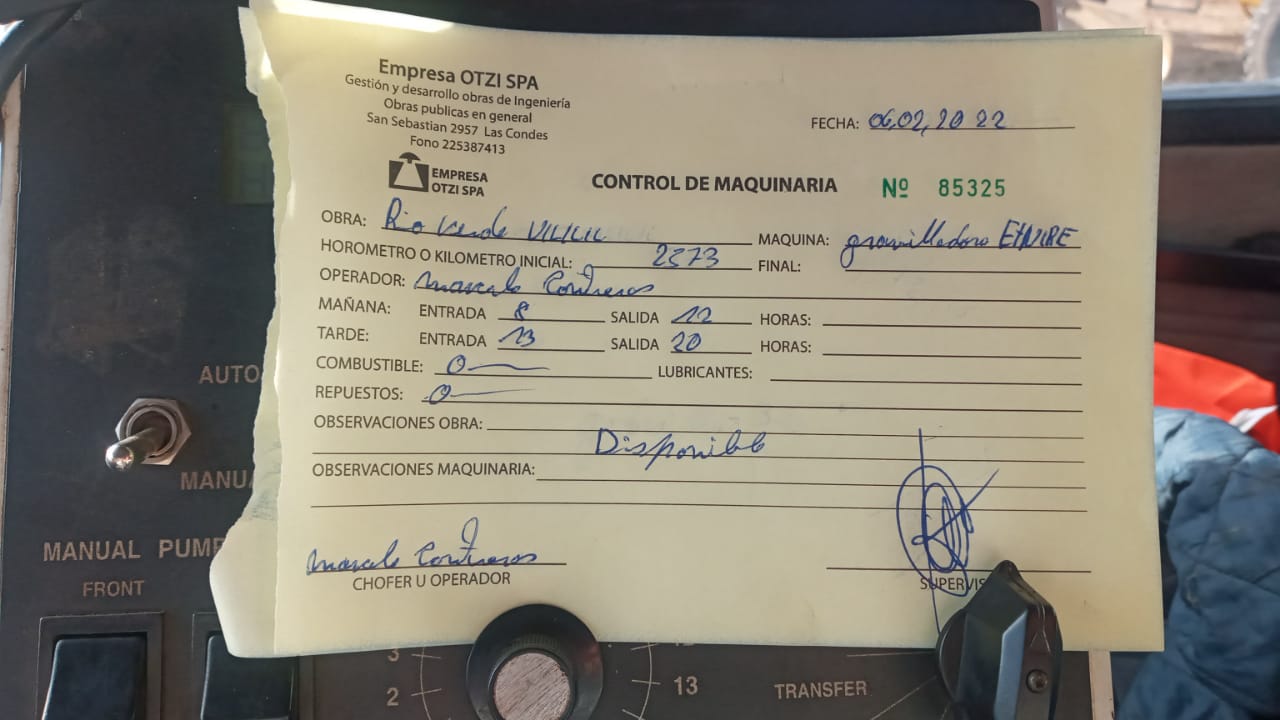 Empresa OTZI SPA
Gestión y desarrollo obras de Ingeniería
Obras publicas en general
San Sebastian 2957 Las Condes
Fono 225387413
FECHA: 06,02,20 22
EMPRESA
OTZI SPA
CONTROL DE MAQUINARIA Nº 85325
OBRA: Rio Verde
MAQUINA: gravilladora
HOROMETRO O KILOMETRO INICIAL: 2573 FINAL:
OPERADOR: Marcelo Contreras
MAÑANA: ENTRADA 8 SALIDA 12 HORAS:
TARDE: ENTRADA 13 SALIDA 20 HORAS:
COMBUSTIBLE: 0 LUBRICANTES:
REPUESTOS: 0
OBSERVACIONES OBRA:
Disponible
OBSERVACIONES MAQUINARIA:
Marcelo Contreras
CHOFER U OPERADOR
AUTO
MANUAL PUMP
FRONT
3
2
13
TRANSFER